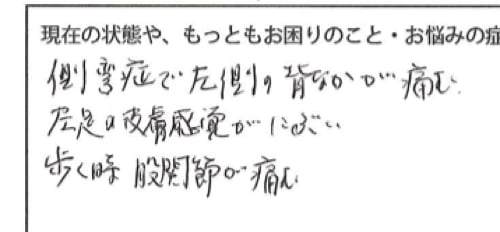 現在の状態や、もっともお困りのこと・お悩みの症
側弯症で左側の背なかが痛む
左足の皮膚感覚がにぶい
歩く時 股関節が痛む